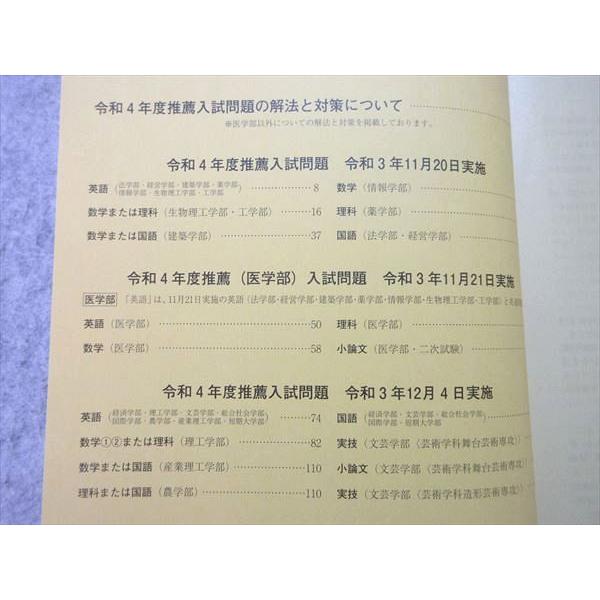 令和4年度推薦入試問題の解法と対策について
※医学部以外についての解法と対策を掲載しております。
令和4年度推薦入試問題 令和3年11月20日実施
英語(法学部・経営学部・建築学部・薬学部・情報学部・生物理工学部・工学部) 8
数学(情報学部)
数学または理科(生物理工学部・工学部) 16
理科(薬学部)
数学または国語(建築学部) 37
国語(法学部・経営学部)
令和4年度推薦(医学部)入試問題 令和3年11月21日実施
医学部 「英語」は、11月21日実施の英語(法学部・経営学部・建築学部・薬学部・情報学部・生物理工学部・工学部)と
英語(医学部) 50
理科(医学部)
数学(医学部) 58
小論文(医学部・二次試験)
令和4年度推薦入試問題 令和3年12月4日実施
英語(経済学部・理工学部・文芸学部・総合社会学部・国際学部・農学部・産業理工学部・短期大学部) 74
国語(経済学部・文芸学部・総合社会学部・国際学部・短期大学部)
数学①②または理科(理工学部) 82
実技(文芸学部〈芸術学科舞台芸術専攻〉)
数学または国語(産業理工学部) 110
小論文(文芸学部〈芸術学科舞台芸術専攻〉)
理科または国語(農学部) 110
実技(文芸学部〈芸術学科造形芸術専攻〉)